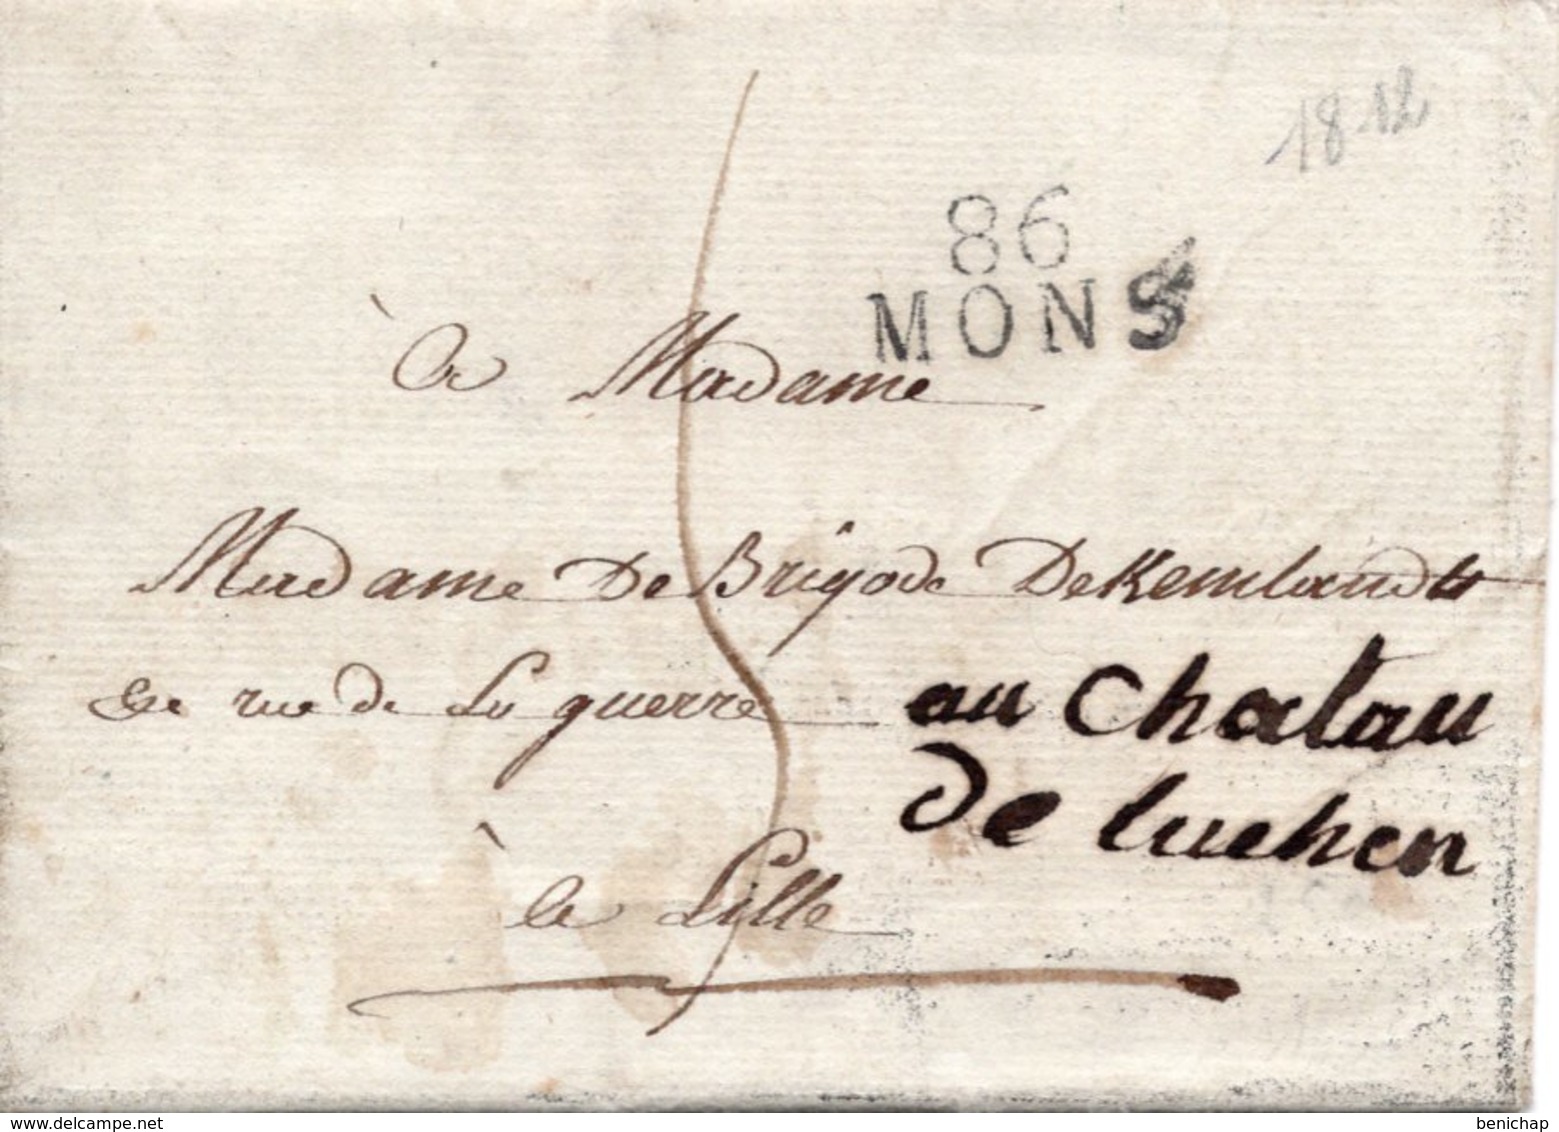 1812
86
MONS
à Madame
Madame De Brigode DeKemlandt
rue de La guerre au Chatau
De luchen
à Lille
www.delcampe.net
benichap